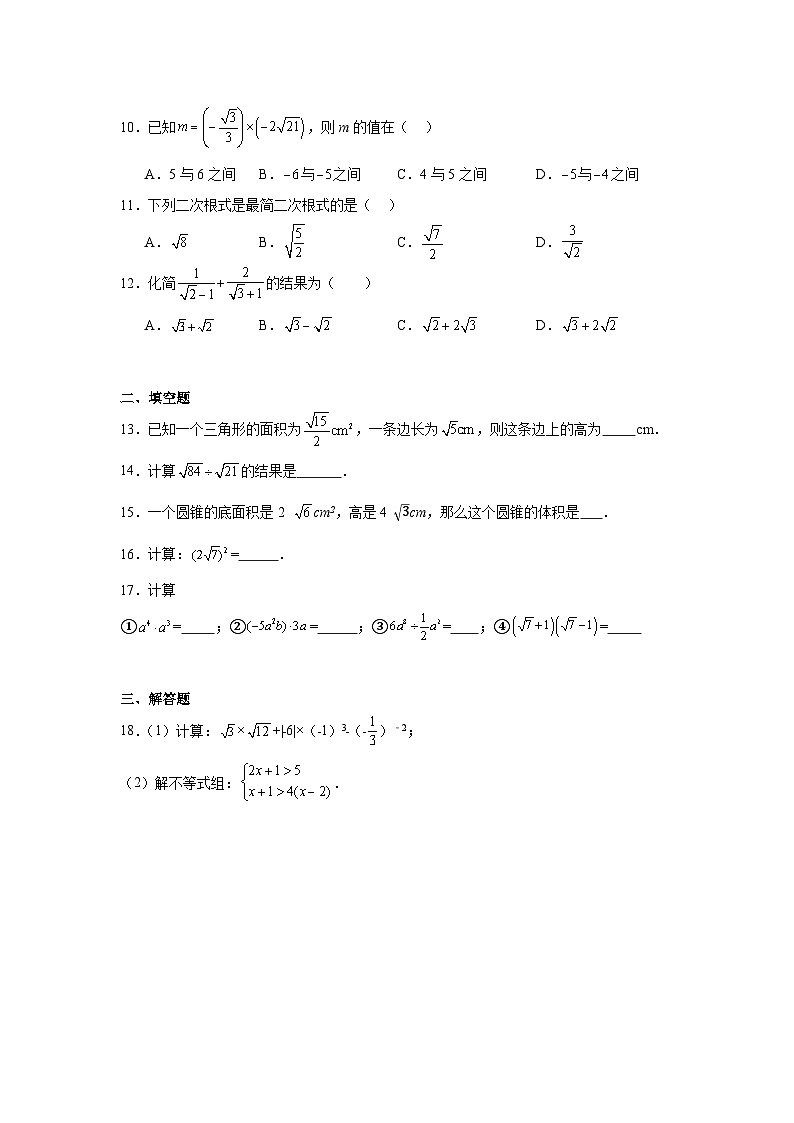 10.已知m=(-√3/3)×(-2√21),则m的值在( )
A.5与6之间 B.-6与-5之间 C.4与5之间 D.-5与-4之间
11.下列二次根式是最简二次根式的是( )
A.√8 B.√(5/2) C.√7/2 D.3/√2
12.化简1/(√2-1)+2/(√3+1)的结果为( )
A.√3+√2 B.√3-√2 C.√2+2√3 D.√3+2√2
二、填空题
13.已知一个三角形的面积为√15/2 cm²,一条边长为√5cm,则这条边上的高为_____cm.
14.计算√84÷√21的结果是______.
15.一个圆锥的底面积是2 √6 cm²,高是4 √3cm,那么这个圆锥的体积是___.
16.计算:(2√7)²=______.
17.计算
①a⁴·a³=_____;②(-5a²b)·3a=______;③6a⁸÷1/2a²=____;④(√7+1)(√7-1)=_____
三、解答题
18.(1)计算:√3×√12+|-6|×(-1)³-(-1/3)﹣²;
(2)解不等式组:{2x+1>5
x+1>4(x-2).